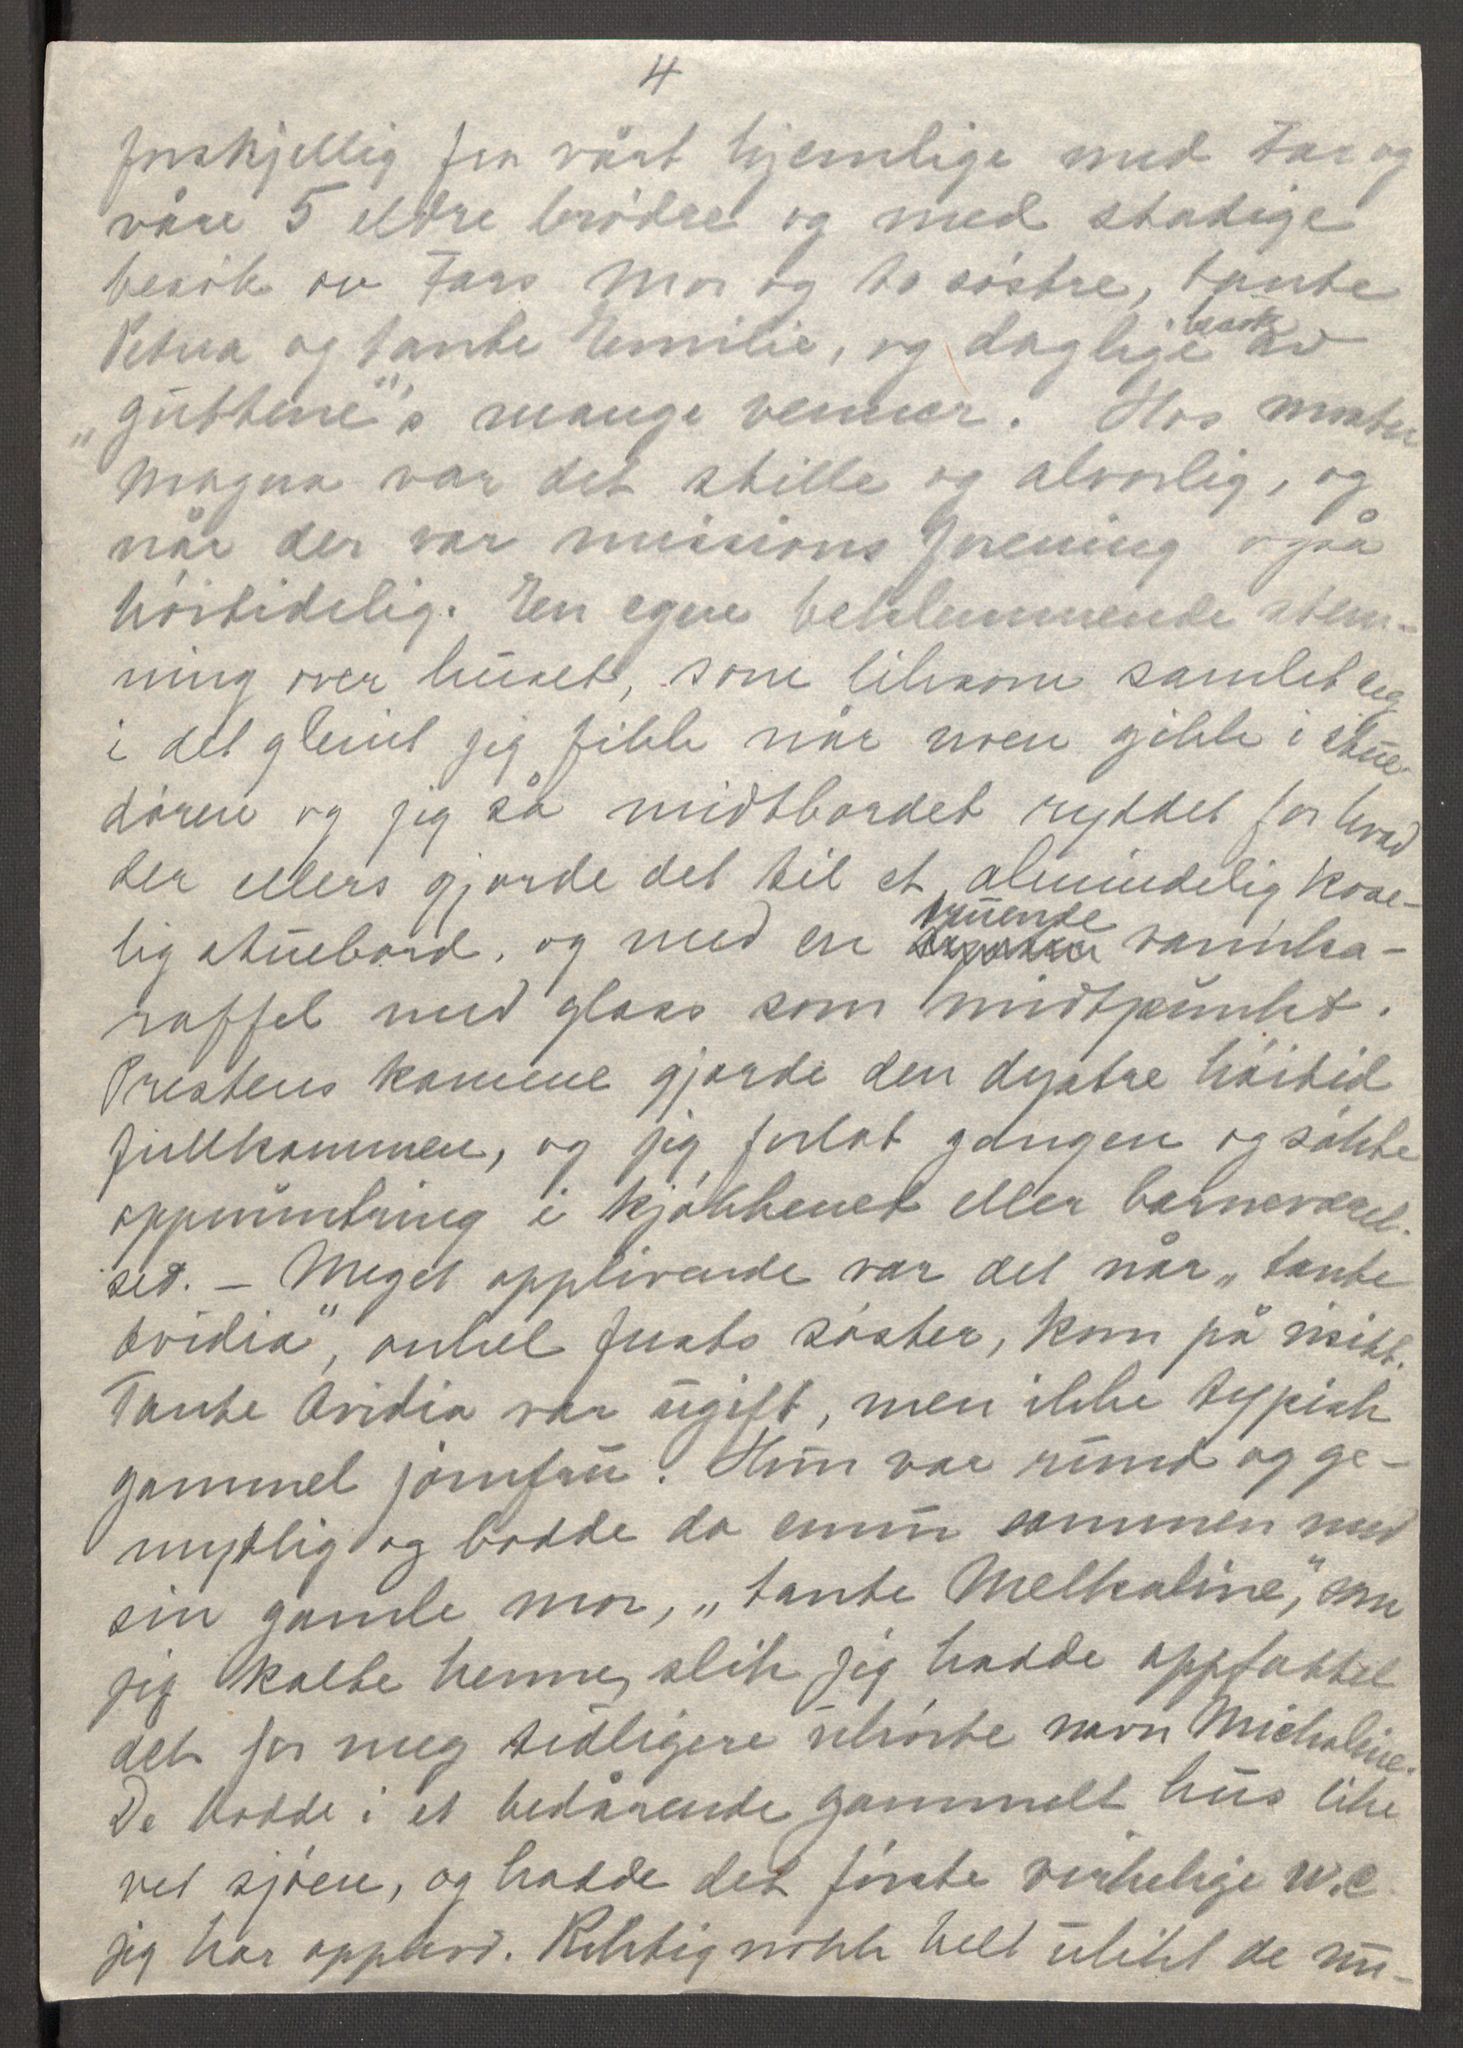 4
forskjellig fra vårt hjemlige med Far og
våre 5 eldre brødre og med stadige
besøk av Fars Mor og to søstre, tante
Petrea og tante Emilie, og daglige besøk av
„guttene"s mange venner. Hos moster
Magna var det stille og alvorlig, og
når der var missionsforening også
høitidelig. En egen beklemmende stem-
ning over huset, som liksom samlet seg
i det glimt jeg fikk når noen gikk i stue-
døren og jeg så midtbordet ryddet for hvad
der ellers gjorde det til et almindelig kose-
lig stuebord, og med en truende vannka-
raffel med glass som midtpunkt.
Prestens komme gjorde den dystre høitid
fullkommen, og jeg forlot gangen og søkte
oppmuntring i kjøkkenet eller barneværel-
set. - Meget opplivende var det når „tante
Ovidia", onkel Justs søster, kom på visitt.
Tante Ovidia var ugift, men ikke typisk
gammel jomfru. Hun var rund og ge-
mytlig og bodde da ennu sammen med
sin gamle mor, „tante Melkaline", som
jeg kalte henne, slik jeg hadde oppfattet
det for meg tidligere uhørte navn Michaline.
De bodde i et bedårende gammelt hus like
ved sjøen, og hadde det første virkelige W.C.
jeg har opplevd. Riktignokk helt ulikt de nu-